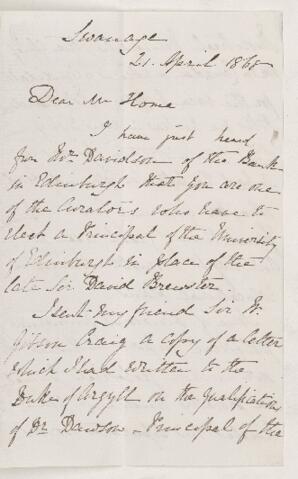 Swanage
21. April 1868
Dear Mr Home
I have just heard
from Mr Davidson of the Bank
in Edinburgh that you are one
of the Curators who have to
elect a Principal of the University
of Edinburgh in place of the
late Sir David Brewster.
I sent my friend Sir W.
Gibson Craig a copy of a letter
which I had written to the
Duke of Argyll on the qualifications
of Dr Dawson - Principal of the